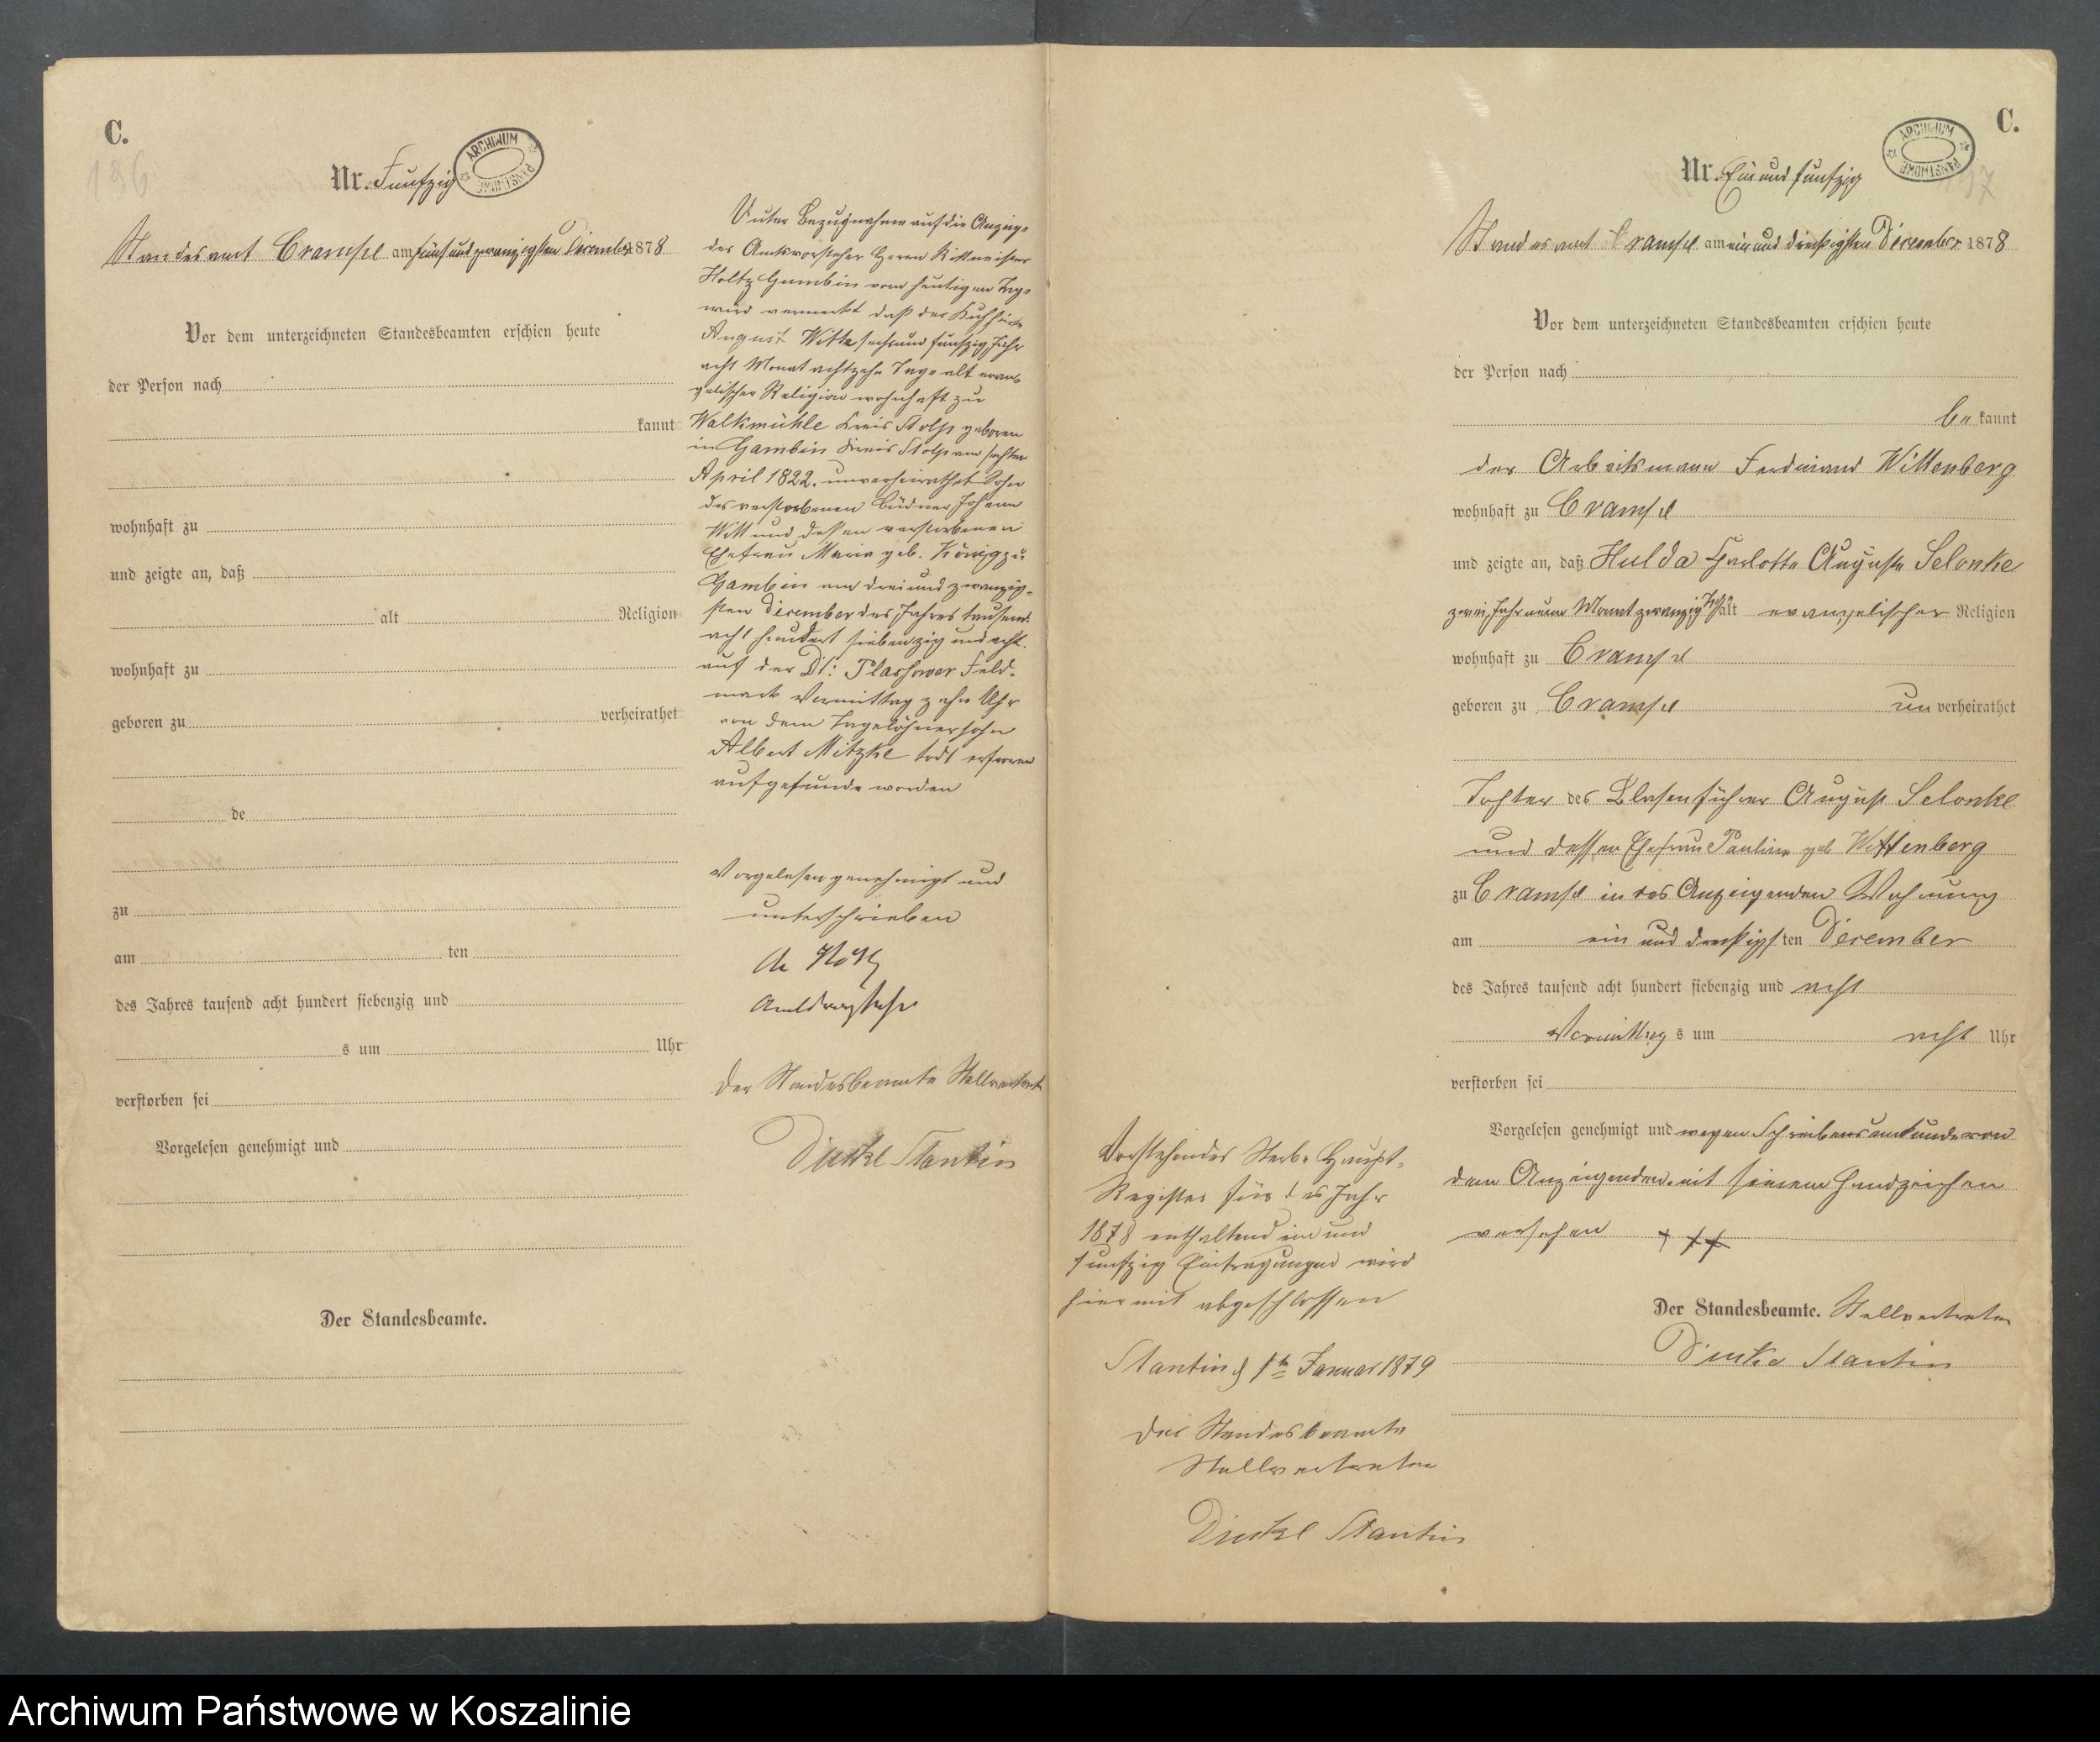 C.
196
Nr. Funfzig
ARCHIWUM PAŃSTWOWE
Standesamt Crampe am fünf und zwanzigsten December 1878
Vor dem unterzeichneten Standesbeamten erschien heute
der Person nach
kannt
wohnhaft zu
und zeigte an, daß
alt Religion
wohnhaft zu
geboren zu verheirathet
de
zu
am ten
des Jahres tausend acht hundert siebenzig und
s um Uhr
verstorben sei
Vorgelesen genehmigt und
Der Standesbeamte.
Unter Bezugnahme auf die Anzeige
des Amtsvorsteher Herrn Rittmeister
Holtz Gambin vom heutigen Tage
wird vermerkt daß der Kuhhirte
August Witte sechsund funfzig Jahr
acht Monat achtzehn Tage alt evan-
gelischer Religion wohnhaft zu
Walkmühle Kreis Stolp geboren
in Gambin Kreis Stolp am sechsten
April 1822. unverheirathet Sohn
des verstorbenen Büdner Johann
Witt und dessen verstorbenen
Ehefrau Maria geb. König zu
Gambin am dreiund zwanzig-
sten December des Jahres tausend
acht hundert siebenzig und acht
auf der Dt: Plassower Feld-
mark Vormittag zehn Uhr
von dem Tagelöhnersohn
Albert Mitzke todt erfroren
aufgefunde worden
Vorgelesen genehmigt und
unterschrieben
Holtz
Amtsvorsteher
Der Standesbeamte Stellvertreter
Dinkel Stantin
C.
Nr. Ein und funfzig
ARCHIWUM PAŃSTWOWE
Standesamt Crampe am ein und dreißigsten December 1878
Vor dem unterzeichneten Standesbeamten erschien heute
der Person nach
be kannt
der Arbeitsmann Ferdinand Wittenberg
wohnhaft zu Crampe
und zeigte an, daß Hulda Charlotte Auguste Selonke
zwei Jahr neun Monat zwanzig Tage alt evangelischer Religion
wohnhaft zu Crampe
geboren zu Crampe un verheirathet
Tochter des August Selonke
und dessen Ehefrau Pauline geb Wittenberg
zu Crampe in des Anzeigenden Wohnung
am ein und dreißigsten December
des Jahres tausend acht hundert siebenzig und acht
Vormittag s um acht Uhr
verstorben sei
Vorgelesen genehmigt und wegen Schreibensunkunde von
dem Anzeigenden mit seinem Handzeichen
versehen +++
Der Standesbeamte. Stellvertreter
Dinkel Stantin
Vorstehendes Sterbe Haupt-
Register für das Jahr
1878 enthaltend ein und
funfzig Eintragungen wird
hiermit abgeschlossen
Stantin d 1ten Januar 1879
Der Standesbeamte
Stellvertreter
Dinkel Stantin
Archiwum Państwowe w Koszalinie